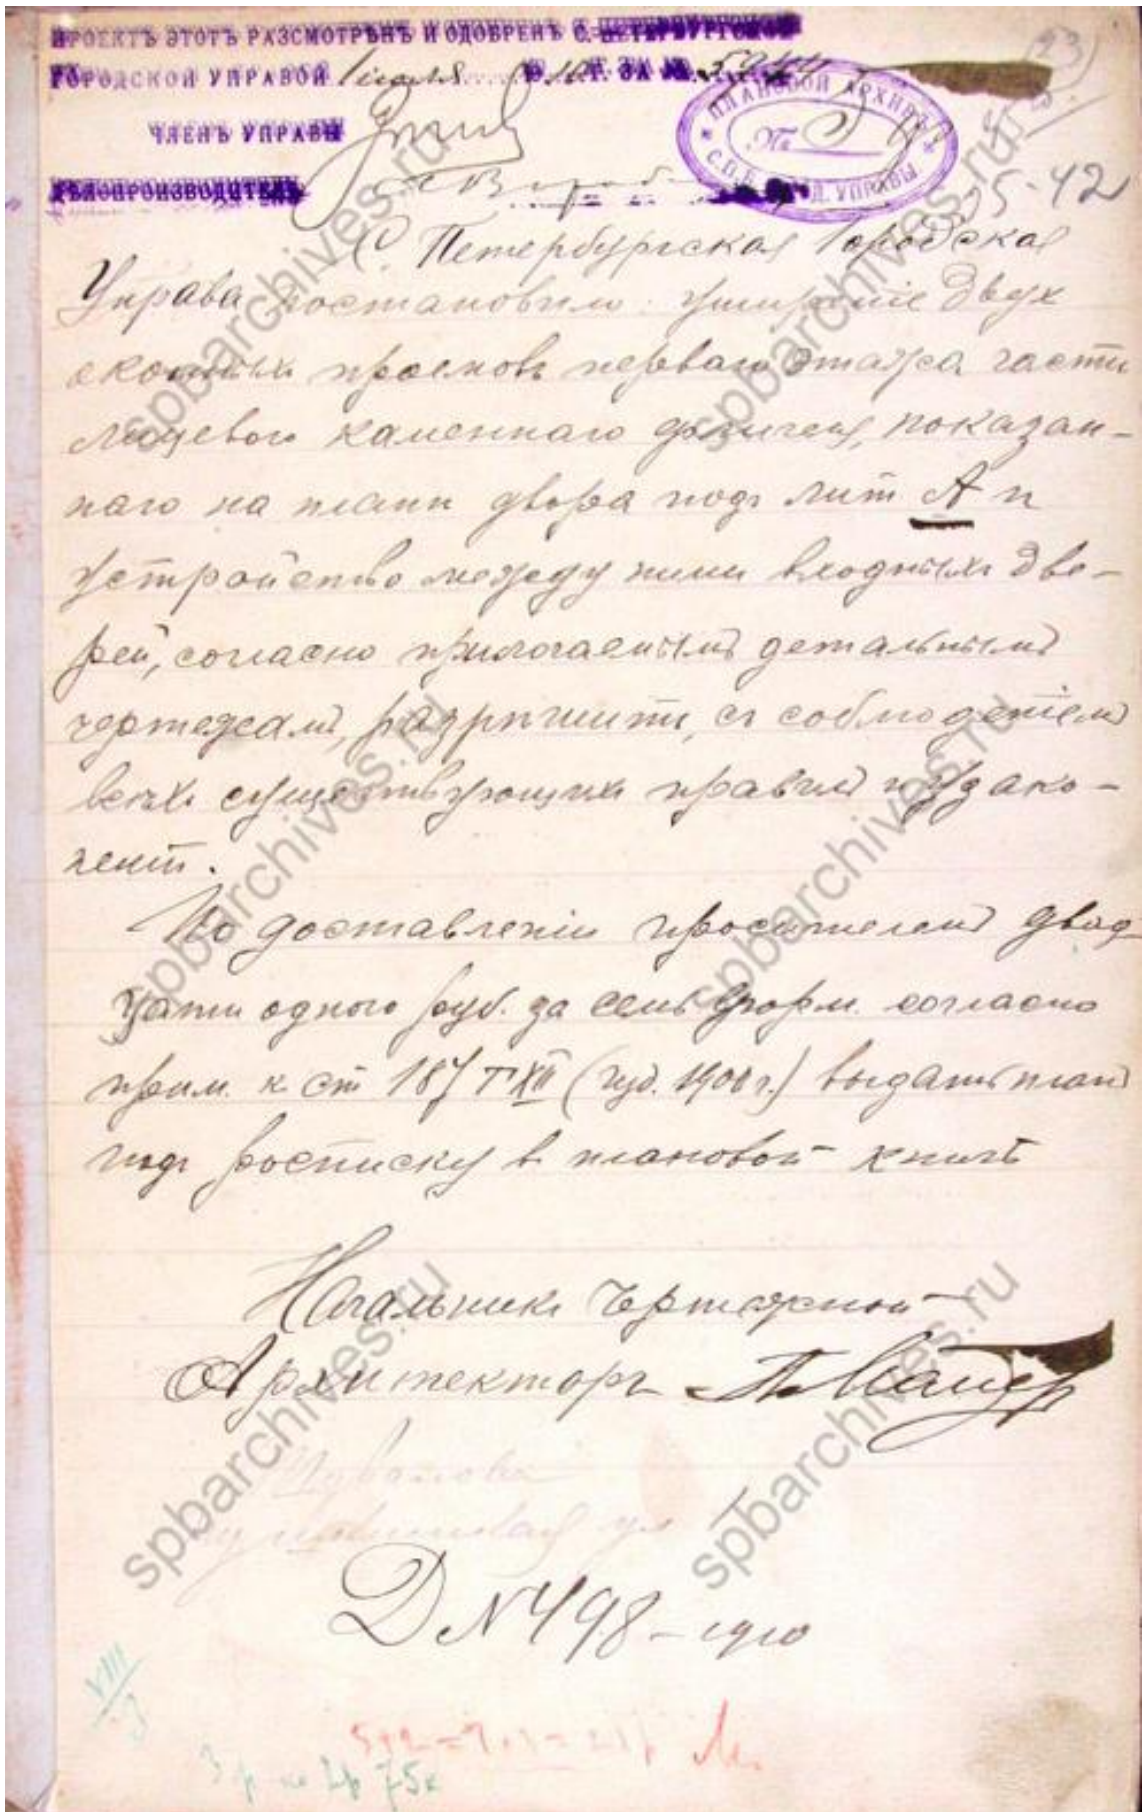 ПРОЕКТЪ ЭТОТЪ РАЗСМОТРѢНЪ И ОДОБРЕНЪ С. ПЕТЕРБУРГСКОЙ
ГОРОДСКОЙ УПРАВОЙ 1 июля 1910 Г. ЗА №
ЧЛЕНЪ УПРАВЫ
ДѢЛОПРОИЗВОДИТЕЛЬ
ПЛАНОВОЙ АРХИВЪ
№
С.П.Б. ГОРОД. УПРАВЫ
23
С. Петербургская Городская
Управа постановила: уширеніе двух
оконныхъ проемовъ перваго этажа части
лицевого каменнаго флигеля, показан-
наго на планѣ двора подъ лит А и
устройство между ними входныхъ две-
рей, согласно прилогаемымъ детальнымъ
чертежамъ, разрѣшить, съ соблюденіемъ
всѣхъ существующихъ правилъ и узако-
неній.
По доставленіи просителемъ двад-
цати одного руб. за семь форм. согласно
прим. к ст 187 т XII (изд. 1900 г.) выдать план
подъ росписку в плановой книгѣ
Начальникъ Чертежной
Архитекторъ
Д № 498 - 1910
VIII
3
3 р по 2р 75к
spbarchives.ru
spbarchives.ru
spbarchives.ru
spbarchives.ru
spbarchives.ru
spbarchives.ru